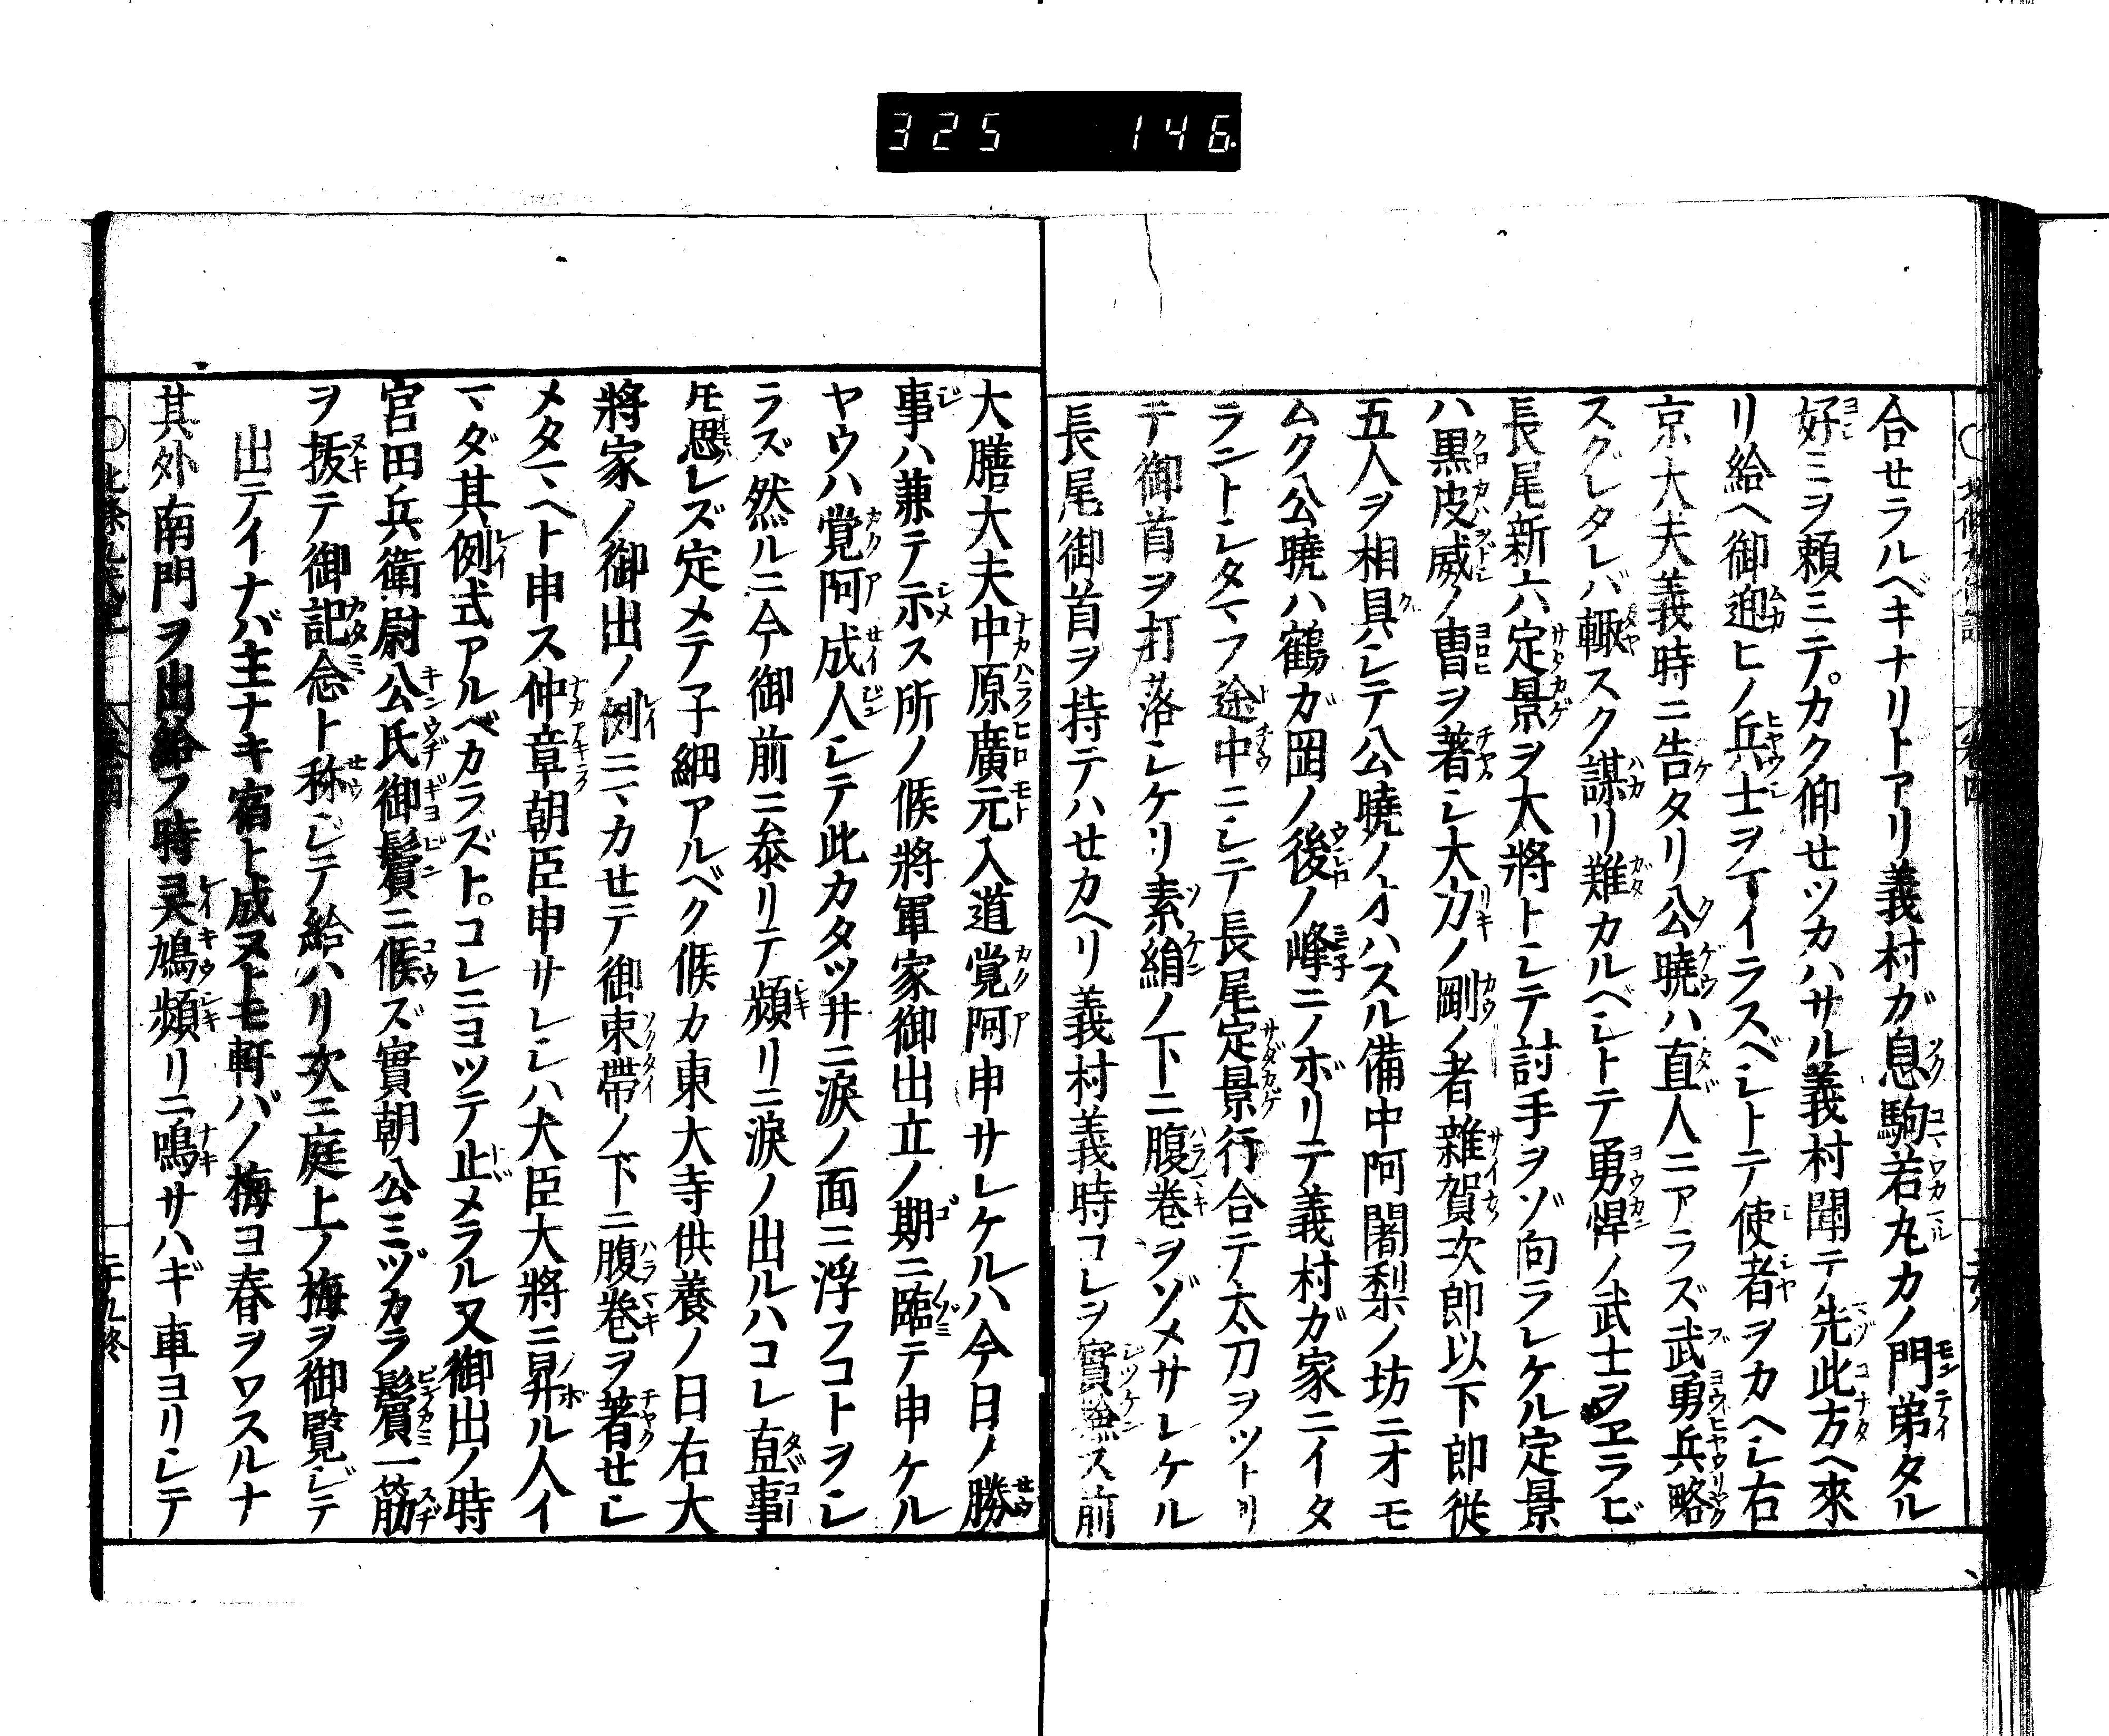 325 146
合せラルベキナリトアリ義村ガ息駒若丸カノ門弟タル
好ミヲ頼ミテ。カク仰せツカハサル義村聞テ先此方ヘ來
リ給ヘ御迎ヒノ兵士ヲマイラスベシトテ使者ヲカヘシ右
京大夫義時ニ告タリ公曉ハ直人ニアラズ武勇兵略
スグレタレバ輙スク謀リ難カルベシトテ勇悍ノ武士ヲヱラビ
長尾新六定景ヲ大將トシテ討手ヲゾ向ラレケル定景
ハ黒皮威ノ冑ヲ著シ大力ノ剛ノ者雜賀次郎以下郎従
五人ヲ相具シテ公曉ノオハスル備中阿闍梨ノ坊ニオモ
ムク公曉ハ鶴ガ岡ノ後ノ峰ニノボリテ義村ガ家ニイタ
ラントシタマフ途中ニシテ長尾定景行合テ太刀ヲツトリ
テ御首ヲ打落シケリ素絹ノ下ニ腹巻ヲゾメサレケル
長尾御首ヲ持テハせカヘリ義村義時コレヲ實檢ス前
大膳大夫中原廣元入道覚阿申サレケルハ今日ノ勝
事ハ兼テ示ス所ノ候將軍家御出立ノ期ニ臨テ申ケル
ヤウハ覚阿成人シテ此カタツ井ニ涙ノ面ニ浮フコトヲシ
ラズ然ルニ今御前ニ参リテ頻リニ涙ノ出ルハコレ直事
𪜈思レズ定メテ子細アルベク候カ東大寺供養ノ日右大
將家ノ御出ノ例ニマカせテ御束帶ノ下ニ腹巻ヲ著せシ
メタマヘト申ス仲章朝臣申サレシハ大臣大將ニ昇ル人イ
マダ其例式アルベカラズト。コレニヨツテ止メラル又御出ノ時
宮田兵衛尉公氏御鬢ニ候ズ實朝公ミヅカラ鬢一筋
ヲ抜テ御記念ト称シテ給ハリ次ニ庭上ノ梅ヲ御覧ジテ
出テイナバ主ナキ宿ト成ヌトモ軒バノ梅ヨ春ヲワスルナ
其外南門ヲ出給フ時灵鳩頻リニ鳴サハギ車ヨリシテ